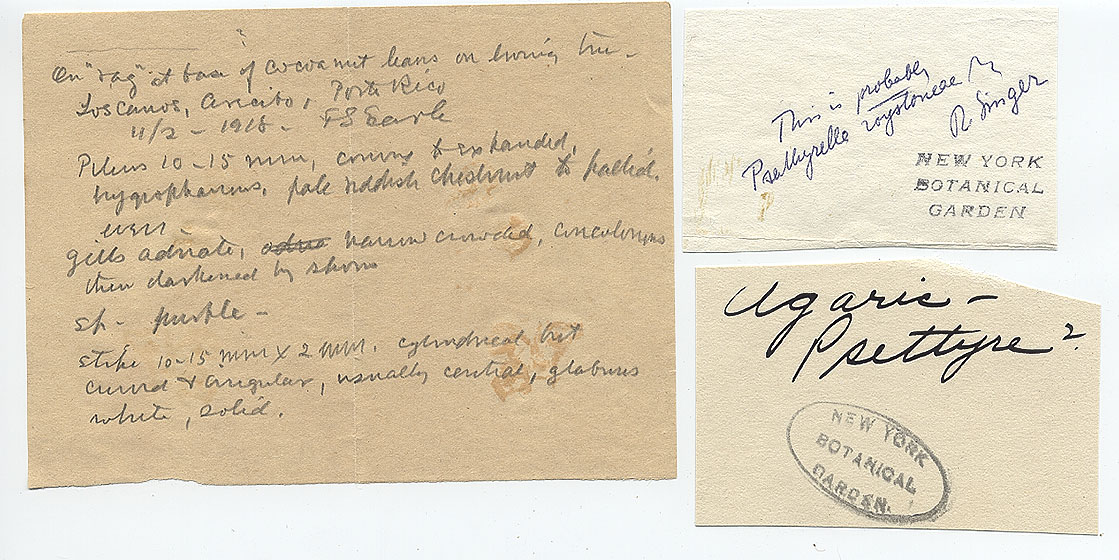 On "rag" at base of cocoanut leaves on living tree -
Los Canos, Arecibo, Porto Rico
11/2 - 1915 - FS Earle
Pileus 10-15 mm, convex to expanded,
hygrophanous, pale reddish chestnut to pallid,
even -
gills adnate, narrow crowded, concolorous
then darkened by spores
sp - purple -
stipe 10-15 mm x 2 mm. cylindrical but
curved & irregular, usually central, glabrous
white, solid.
This is probably
Psathyrella roystoneae
R. Singer
NEW YORK
BOTANICAL
GARDEN
Agaric -
Psathyre?
NEW YORK
BOTANICAL
GARDEN.